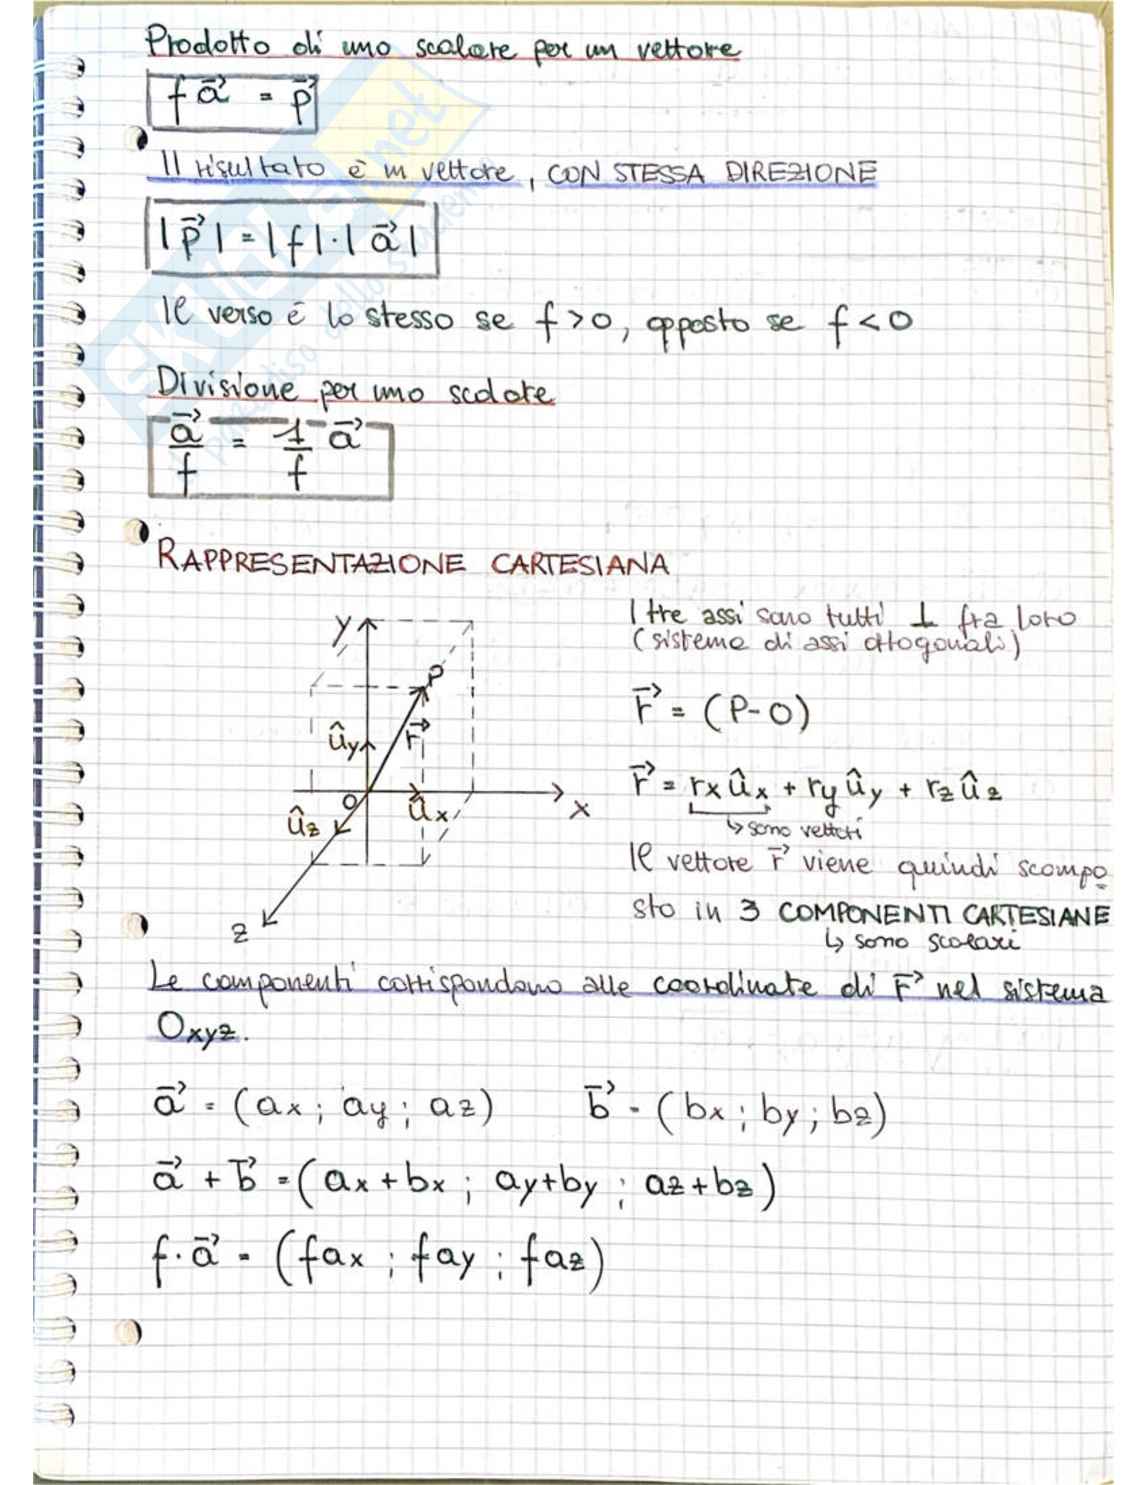 Prodotto di uno scalare per un vettore
f a⃗ = p⃗
Il risultato è un vettore, CON STESSA DIREZIONE
|p⃗| = |f|·|a⃗|
Il verso è lo stesso se f > 0, opposto se f < 0
Divisione per uno scalare
a⃗/f = 1/f a⃗
RAPPRESENTAZIONE CARTESIANA
I tre assi sono tutti ⊥ fra loro
(sistema di assi ortogonali)
y
P
r⃗
ûy
O
ûx
x
ûz
z
r⃗ = (P-O)
r⃗ = rx ûx + ry ûy + rz ûz
↳ sono vettori
Il vettore r⃗ viene quindi scompo
sto in 3 COMPONENTI CARTESIANE
↳ sono scalari
Le componenti corrispondono alle coordinate di r⃗ nel sistema
Oxyz.
a⃗ = (ax ; ay ; az) b⃗ = (bx ; by ; bz)
a⃗ + b⃗ = (ax + bx ; ay + by ; az + bz)
f · a⃗ = (fax ; fay ; faz)
SKUOLA.net